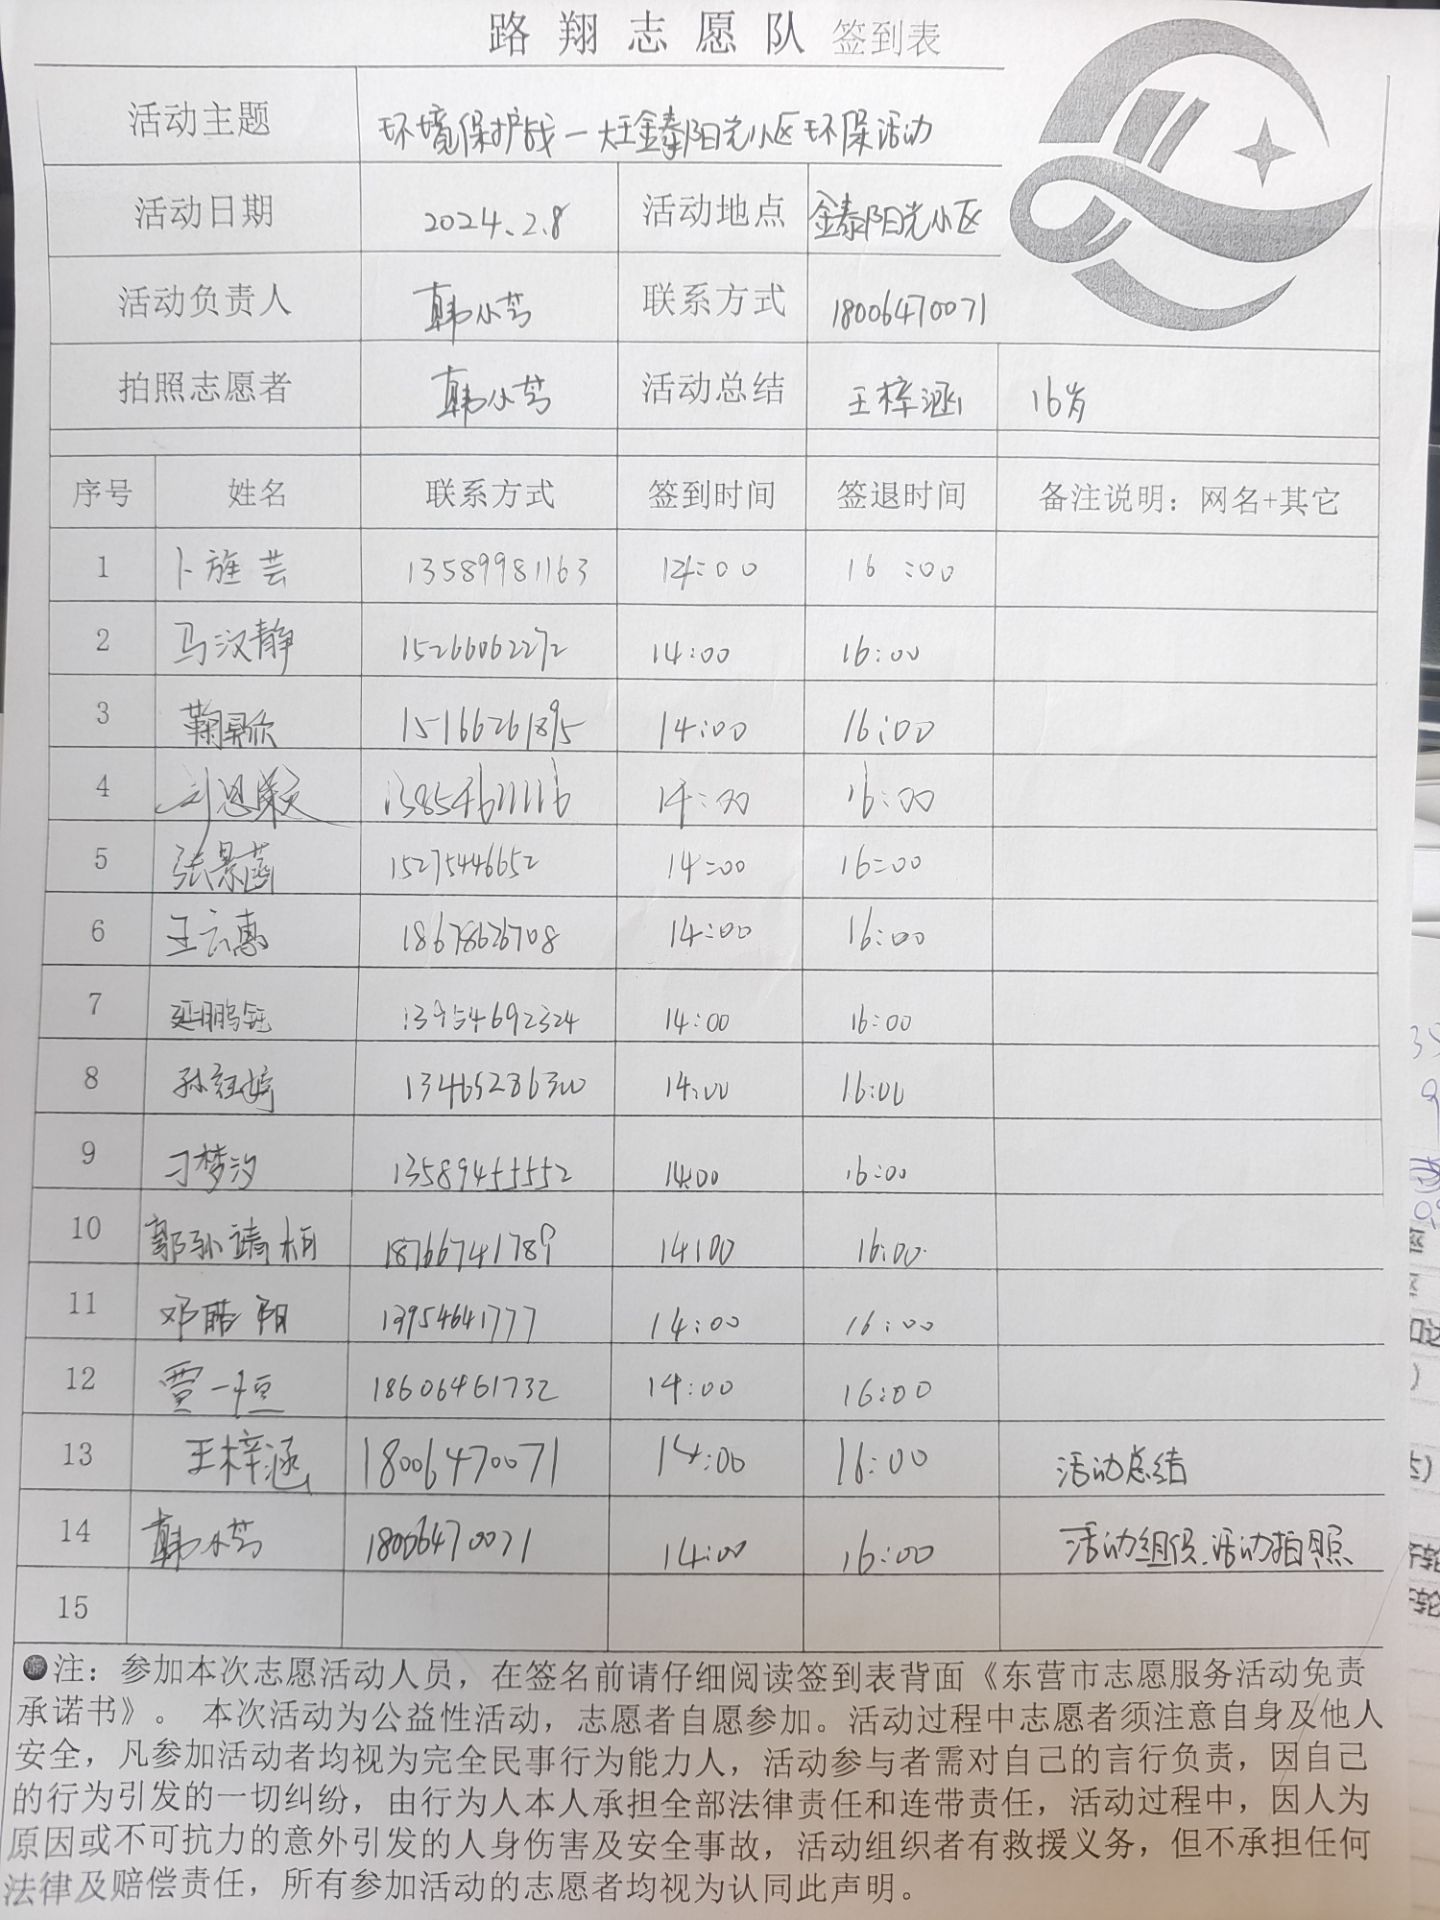 路翔志愿队 签到表
活动主题 环境保护战一大王金泰阳光小区环保活动
活动日期 2024.2.8 活动地点 金泰阳光小区
活动负责人 韩小芳 联系方式 18006470071
拍照志愿者 韩小芳 活动总结 王梓涵 16岁
序号 姓名 联系方式 签到时间 签退时间 备注说明：网名+其它
1 卜旌芸 13589981163 14:00 16:00
2 马汉静 15266062272 14:00 16:00
3 15166261895 14:00 16:00
4 13854611116 14:00 16:00
5 张景菡 15275446652 14:00 16:00
6 王云惠 18678626708 14:00 16:00
7 13954692324 14:00 16:00
8 13465286300 14:00 16:00
9 刁梦汐 13589455552 14:00 16:00
10 郭孙靖桓 18766741789 14:00 16:00
11 邓皓阳 13954641777 14:00 16:00
12 贾一恒 18606461732 14:00 16:00
13 王梓涵 18006470071 14:00 16:00 活动总结
14 韩小芳 18006470071 14:00 16:00 活动组织.活动拍照
15
●注：参加本次志愿活动人员，在签名前请仔细阅读签到表背面《东营市志愿服务活动免责
承诺书》。 本次活动为公益性活动，志愿者自愿参加。活动过程中志愿者须注意自身及他人
安全，凡参加活动者均视为完全民事行为能力人，活动参与者需对自己的言行负责，因自己
的行为引发的一切纠纷，由行为人本人承担全部法律责任和连带责任，活动过程中，因人为
原因或不可抗力的意外引发的人身伤害及安全事故，活动组织者有救援义务，但不承担任何
法律及赔偿责任，所有参加活动的志愿者均视为认同此声明。